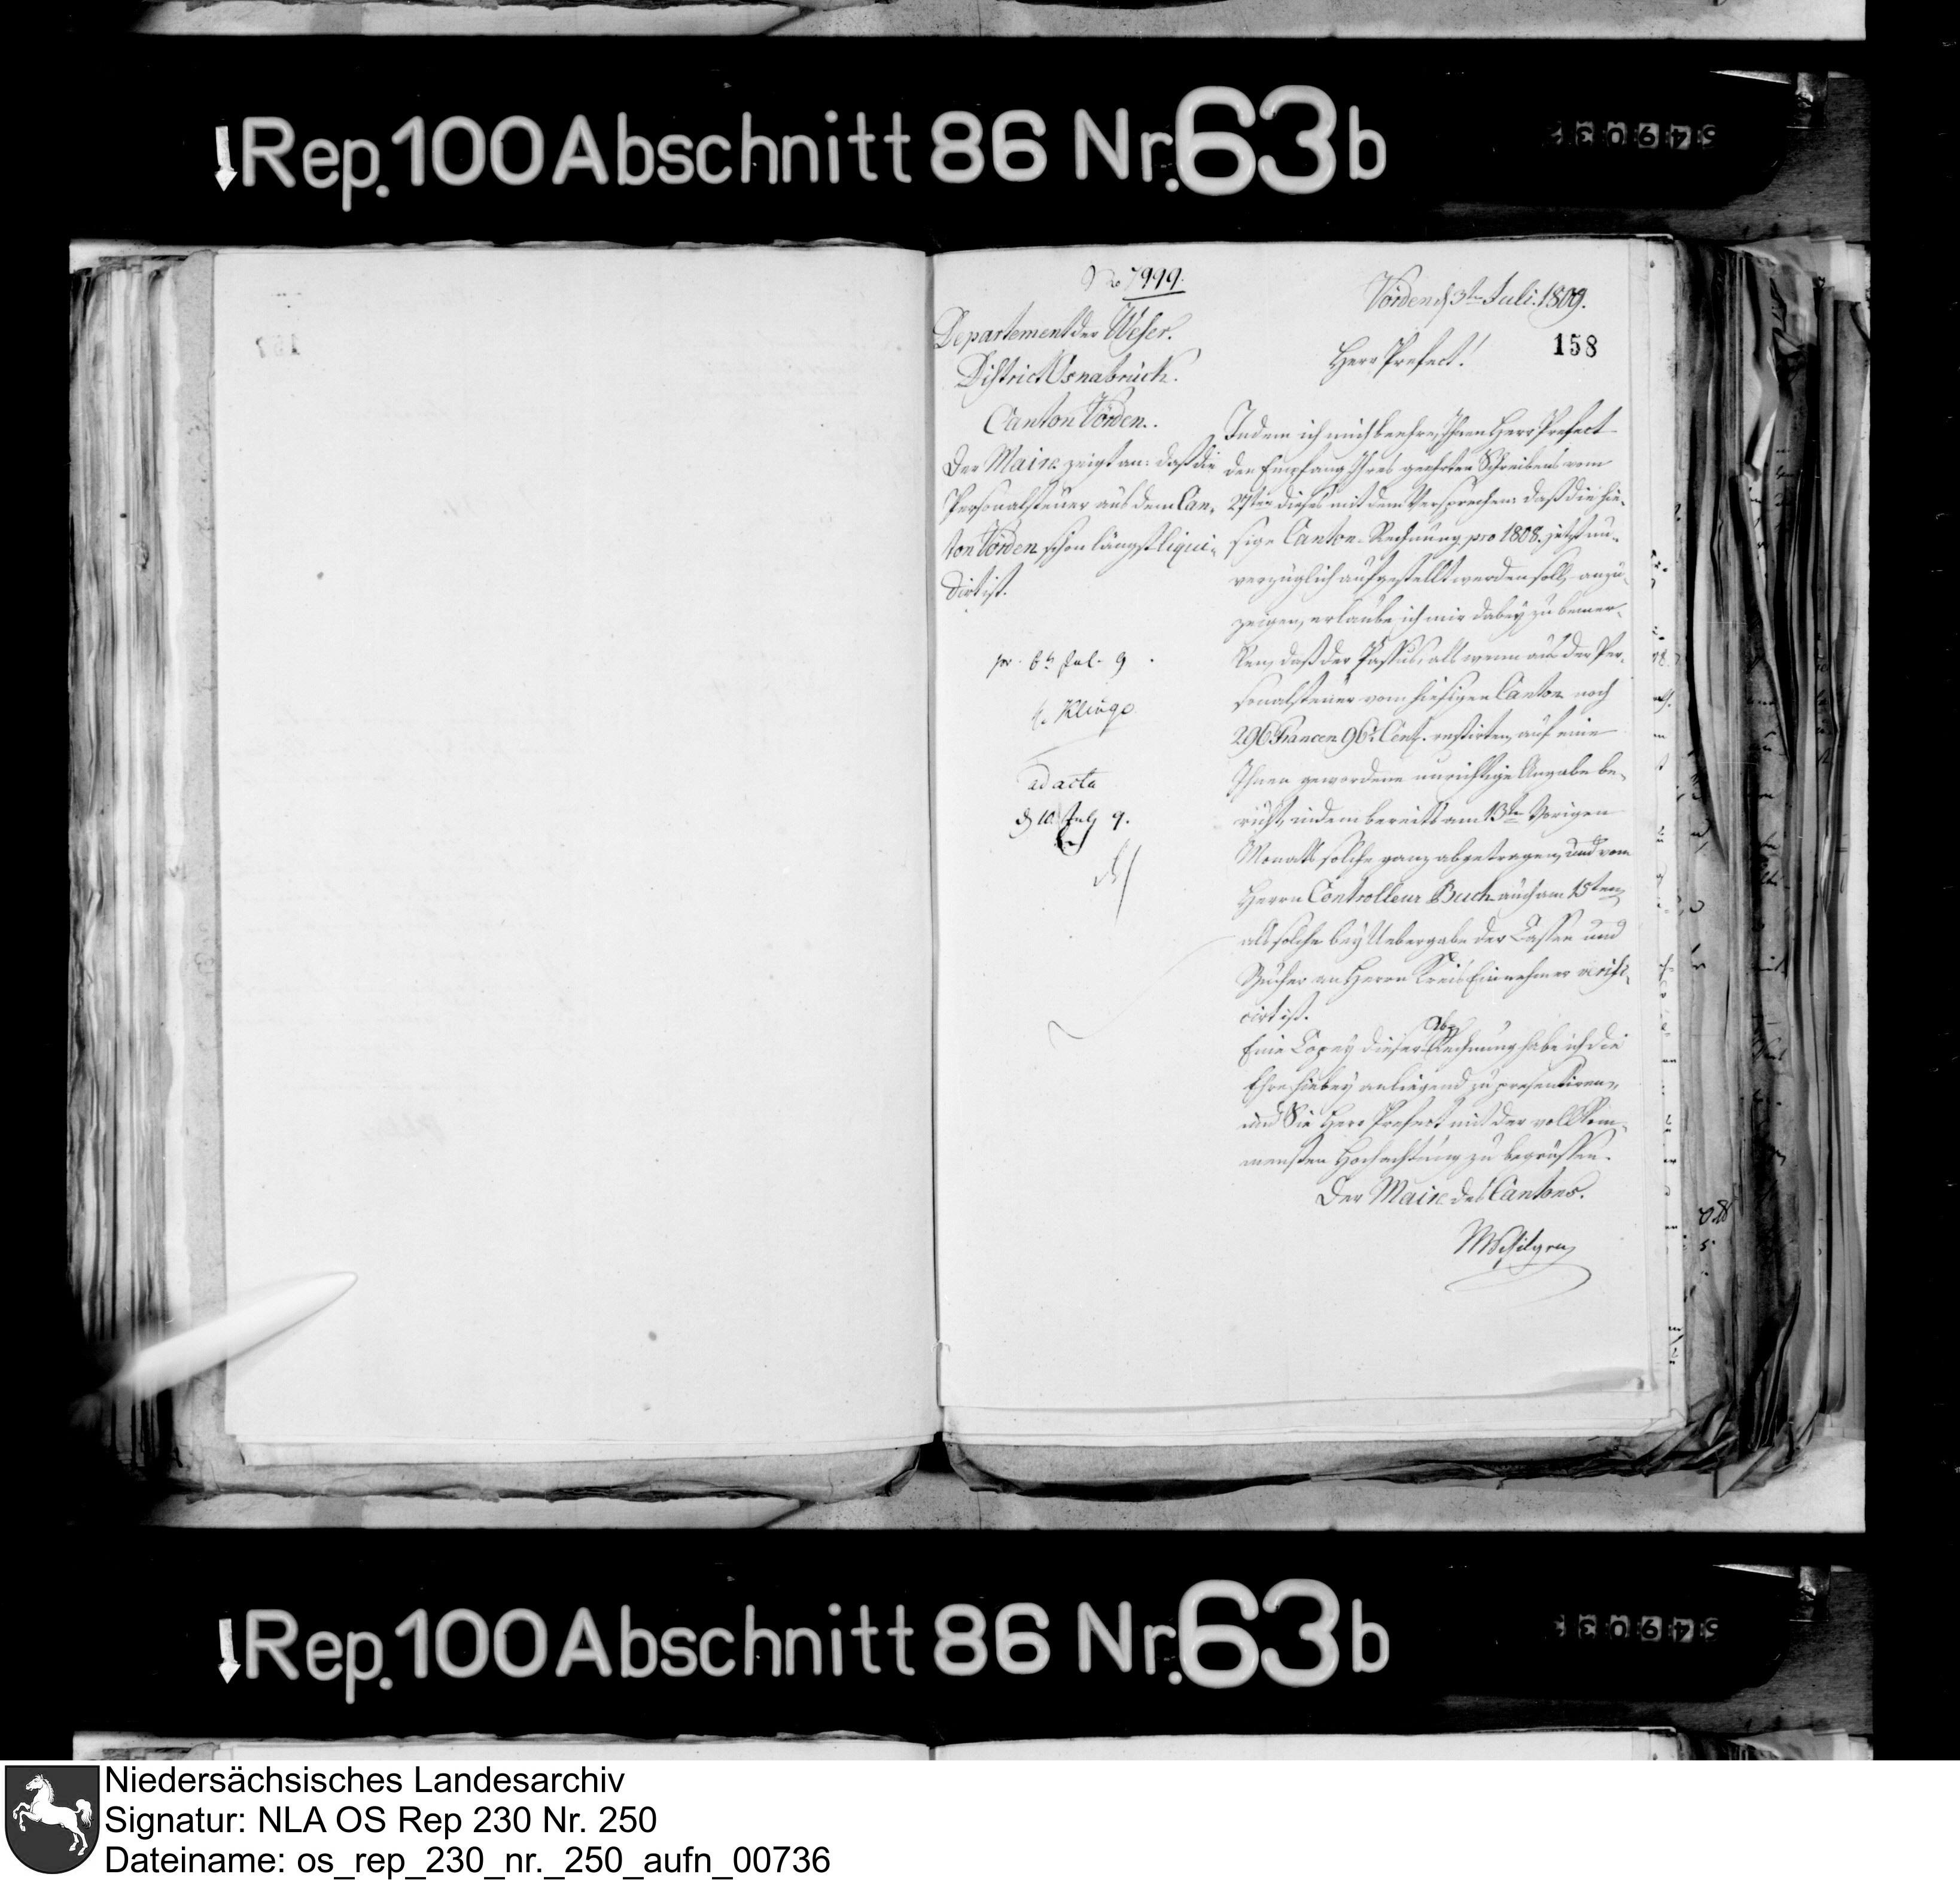 Rep. 100 Abschnitt 86 Nr. 63 b
No 7999.
Vörden d 3ten Juli 1809.
158
Departement der Weser.
District Osnabrück.
Canton Vörden.
Der Maire zeigt an: daß die
Personalsteuer aus dem Can-
ton Vörden schon längst liqui-
dirt ist.
pr. 6t Jul. 9
Klinge
ad acta
d 10. July 9.
Herr Prefect!
Indem ich mich beehre, Ihnen Herr Prefect
den Empfang Ihres geehrten Schreibens vom
27ten dieses mit dem Versprechen: daß die hie-
sige Canton-Rechnung pro 1808. jetzt un-
verzüglich aufgestellt werden soll, anzu-
zeigen, erlaube ich mir dabey zu bemer-
ken, daß der Passus, als wenn aus der Per-
sonalsteuer vom hiesigen Canton noch
296 Francen 96 Cent. restirten, auf eine
Ihnen gewordene unrichtige Angabe be-
ruht, indem bereits am 13ten Vorigen
Monats solche ganz abgetragen, und vom
Herrn Controlleur Buch auch am 15ten
als solche bey Uebergabe der Casse und
Bücher an Herrn Kreis Einnehmer verifi-
cirt ist.
Eine Copey dieser Rechnung habe ich die
Ehre hiebey anliegend zu presentiren,
und Sie Herr Prefect mit der vollkom-
mensten Hochachtung zu begrüssen.
Der Maire des Cantons.
Rep. 100 Abschnitt 86 Nr. 63 b
Niedersächsisches Landesarchiv
Signatur: NLA OS Rep 230 Nr. 250
Dateiname: os_rep_230_nr._250_aufn_00736